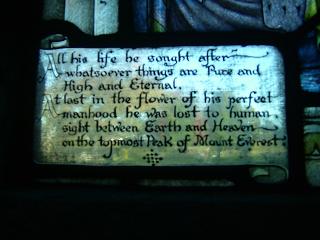 All his life he sought after
whatsoever things are Pure and
High and Eternal.
At last in the flower of his perfect
manhood he was lost to human
sight between Earth and Heaven
on the topmost Peak of Mount Everest.